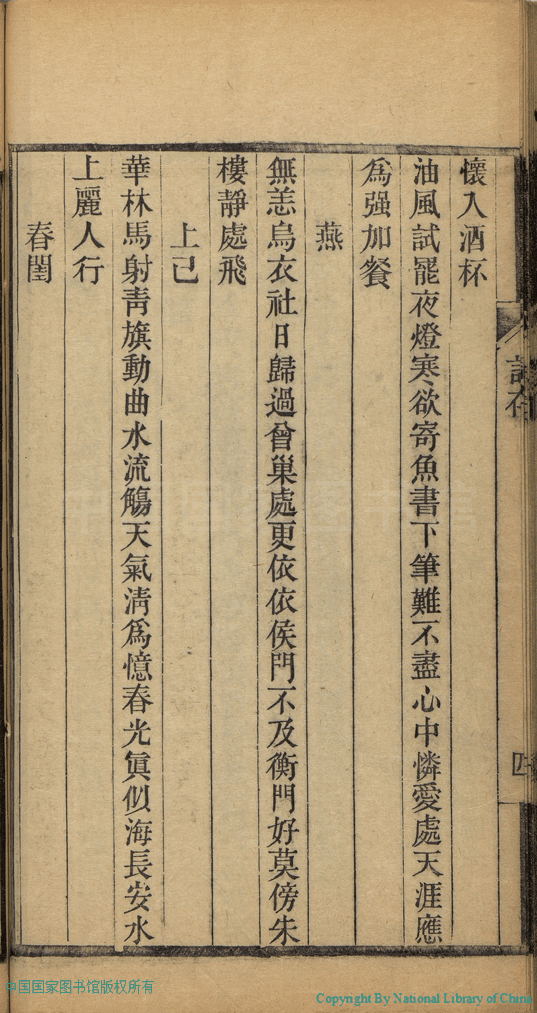 懷入酒杯
油風試罷夜燈寒欲寄魚書下筆難不盡心中憐愛處天涯應
爲强加餐
燕
無恙烏衣社日歸過曾巢處更依依侯門不及衡門好莫傍朱
樓靜處飛
上巳
華林馬射靑旗動曲水流觴天氣淸爲憶春光眞似海長安水
上麗人行
春閨
四
中国国家图书馆版权所有
Copyright By National Library of China